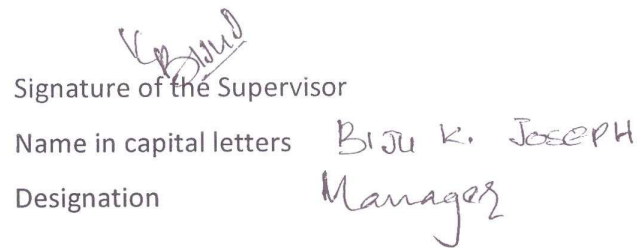 Signature of the Supervisor
Name in capital letters BIJU K. JOSEPH
Designation Manager